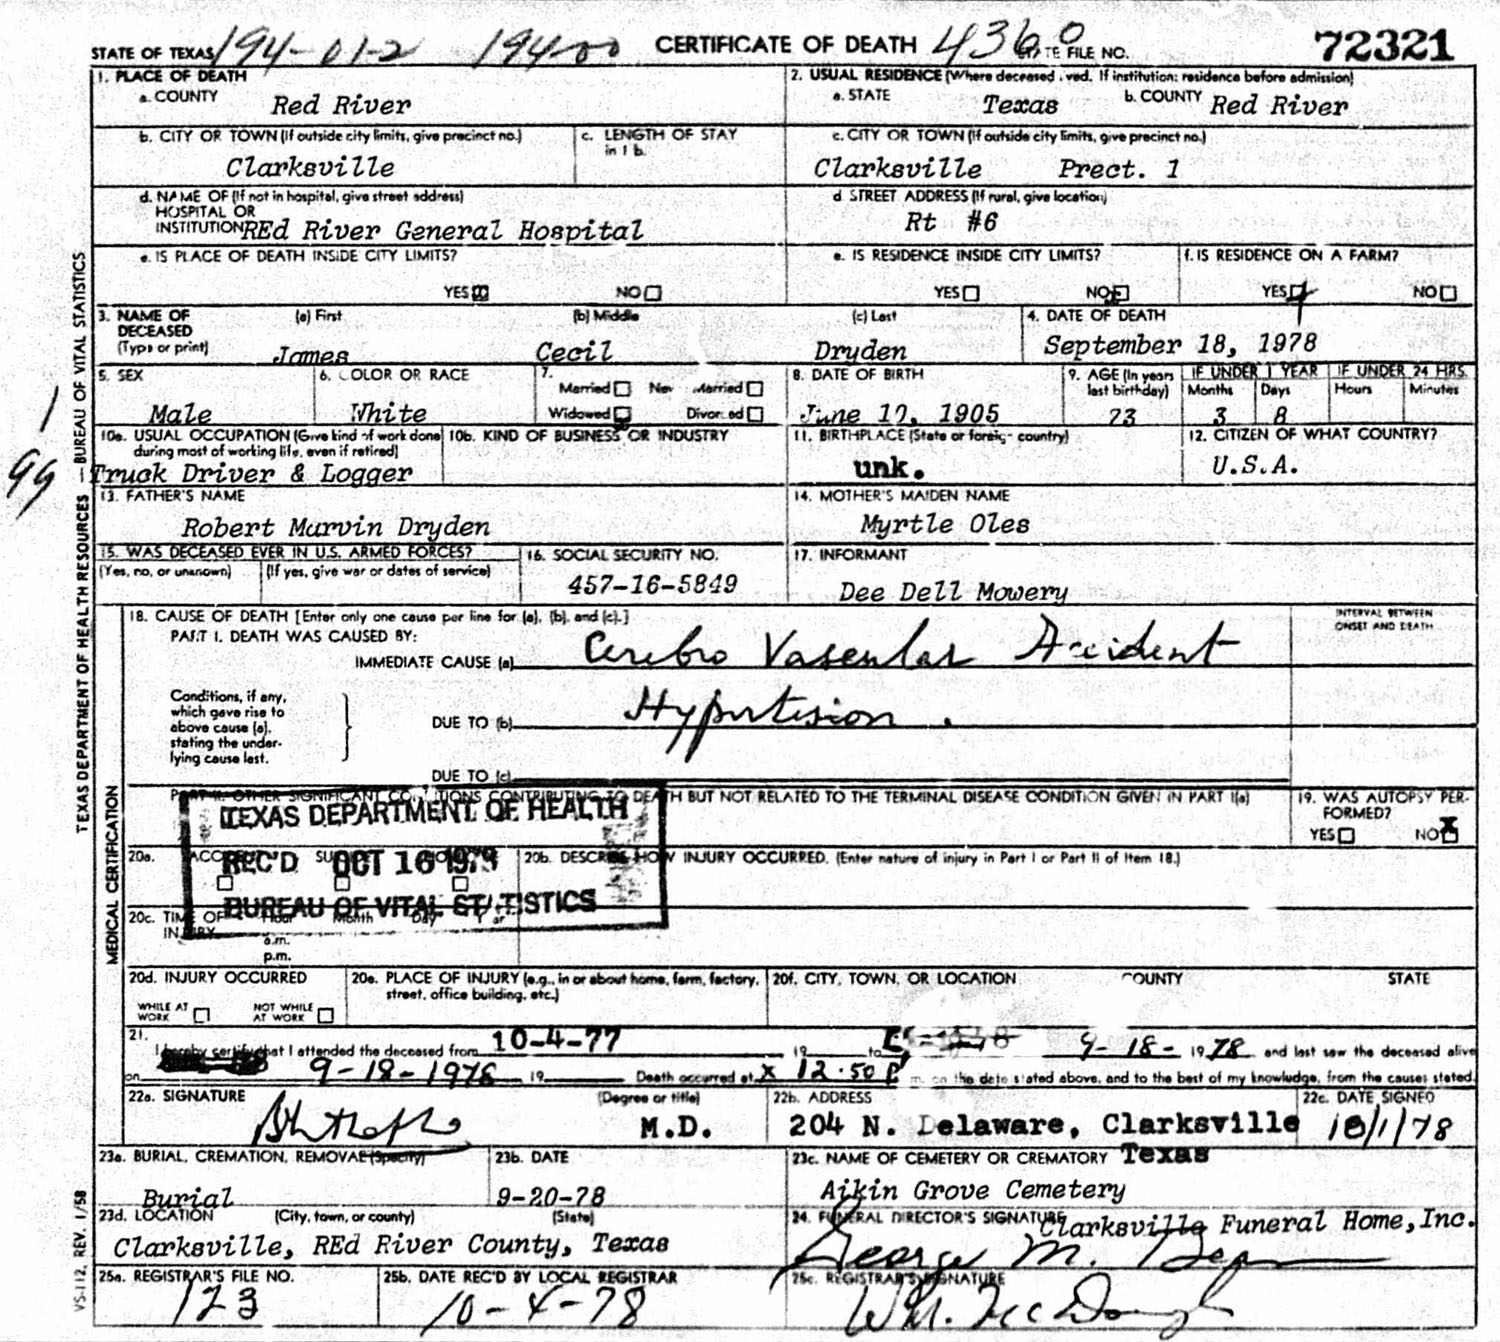 STATE OF TEXAS 194-01-2 194-00 CERTIFICATE OF DEATH 4360 STATE FILE NO. 72321
1. PLACE OF DEATH
a. COUNTY Red River
2. USUAL RESIDENCE (Where deceased lived. If institution: residence before admission)
a. STATE Texas b. COUNTY Red River
b. CITY OR TOWN (If outside city limits, give precinct no.)
Clarksville
c. LENGTH OF STAY in 1 b.
c. CITY OR TOWN (If outside city limits, give precinct no.)
Clarksville Prect. 1
d. NAME OF (If not in hospital, give street address)
HOSPITAL OR
INSTITUTION REd River General Hospital
d STREET ADDRESS (If rural, give location)
Rt #6
e. IS PLACE OF DEATH INSIDE CITY LIMITS?
YES NO
e. IS RESIDENCE INSIDE CITY LIMITS?
YES NO
f. IS RESIDENCE ON A FARM?
YES NO
3. NAME OF DECEASED (Type or print)
(a) First (b) Middle (c) Last
James Cecil Dryden
4. DATE OF DEATH
September 18, 1978
5. SEX
Male
6. COLOR OR RACE
White
7.
Married Never Married
Widowed Divorced
8. DATE OF BIRTH
June 10, 1905
9. AGE (In years last birthday)
73
IF UNDER 1 YEAR
Months Days
3 8
IF UNDER 24 HRS.
Hours Minutes
10a. USUAL OCCUPATION (Give kind of work done during most of working life, even if retired)
Truck Driver & Logger
10b. KIND OF BUSINESS OR INDUSTRY
11. BIRTHPLACE (State or foreign country)
unk.
12. CITIZEN OF WHAT COUNTRY?
U.S.A.
13. FATHER'S NAME
Robert Marvin Dryden
14. MOTHER'S MAIDEN NAME
Myrtle Oles
15. WAS DECEASED EVER IN U.S. ARMED FORCES?
(Yes, no, or unknown) (If yes, give war or dates of service)
16. SOCIAL SECURITY NO.
457-16-5849
17. INFORMANT
Dee Dell Mowery
18. CAUSE OF DEATH [Enter only one cause per line for (a), (b), and (c).]
PART I. DEATH WAS CAUSED BY:
IMMEDIATE CAUSE (a) Cerebro Vascular Accident
INTERVAL BETWEEN ONSET AND DEATH
Conditions, if any, which gave rise to above cause (a), stating the underlying cause last.
DUE TO (b) Hypertesion.
DUE TO (c)
PART II. OTHER SIGNIFICANT CONDITIONS CONTRIBUTING TO DEATH BUT NOT RELATED TO THE TERMINAL DISEASE CONDITION GIVEN IN PART I(a)
19. WAS AUTOPSY PERFORMED?
YES NO
TEXAS DEPARTMENT OF HEALTH
REC'D OCT 16 1978
BUREAU OF VITAL STATISTICS
20a.
20b. DESCRIBE HOW INJURY OCCURRED. (Enter nature of injury in Part I or Part II of Item 18.)
20c. TIME OF INJURY
Hour Month Day Year
a.m.
p.m.
20d. INJURY OCCURRED
WHILE AT WORK NOT WHILE AT WORK
20e. PLACE OF INJURY (e.g., in or about home, farm, factory, street, office building, etc.)
20f. CITY, TOWN, OR LOCATION COUNTY STATE
21.
I hereby certify that I attended the deceased from 10-4-77 19 to 9-18-1978 and last saw the deceased alive
on 9-18-1978 19 Death occurred at X 12:50 P m. on the date stated above, and to the best of my knowledge, from the causes stated.
22a. SIGNATURE (Degree or title)
M.D.
22b. ADDRESS
204 N. Delaware, Clarksville Texas
22c. DATE SIGNED
10/1/78
23a. BURIAL, CREMATION, REMOVAL (Specify)
Burial
23b. DATE
9-20-78
23c. NAME OF CEMETERY OR CREMATORY
Aikin Grove Cemetery
23d. LOCATION (City, town, or county) (State)
Clarksville, REd River County, Texas
24. FUNERAL DIRECTOR'S SIGNATURE
Clarksville Funeral Home, Inc.
George M.
25a. REGISTRAR'S FILE NO.
123
25b. DATE REC'D BY LOCAL REGISTRAR
10-4-78
25c. REGISTRAR'S SIGNATURE
Wm.
TEXAS DEPARTMENT OF HEALTH RESOURCES — BUREAU OF VITAL STATISTICS
MEDICAL CERTIFICATION
VS-112, REV. 1/58
1
99